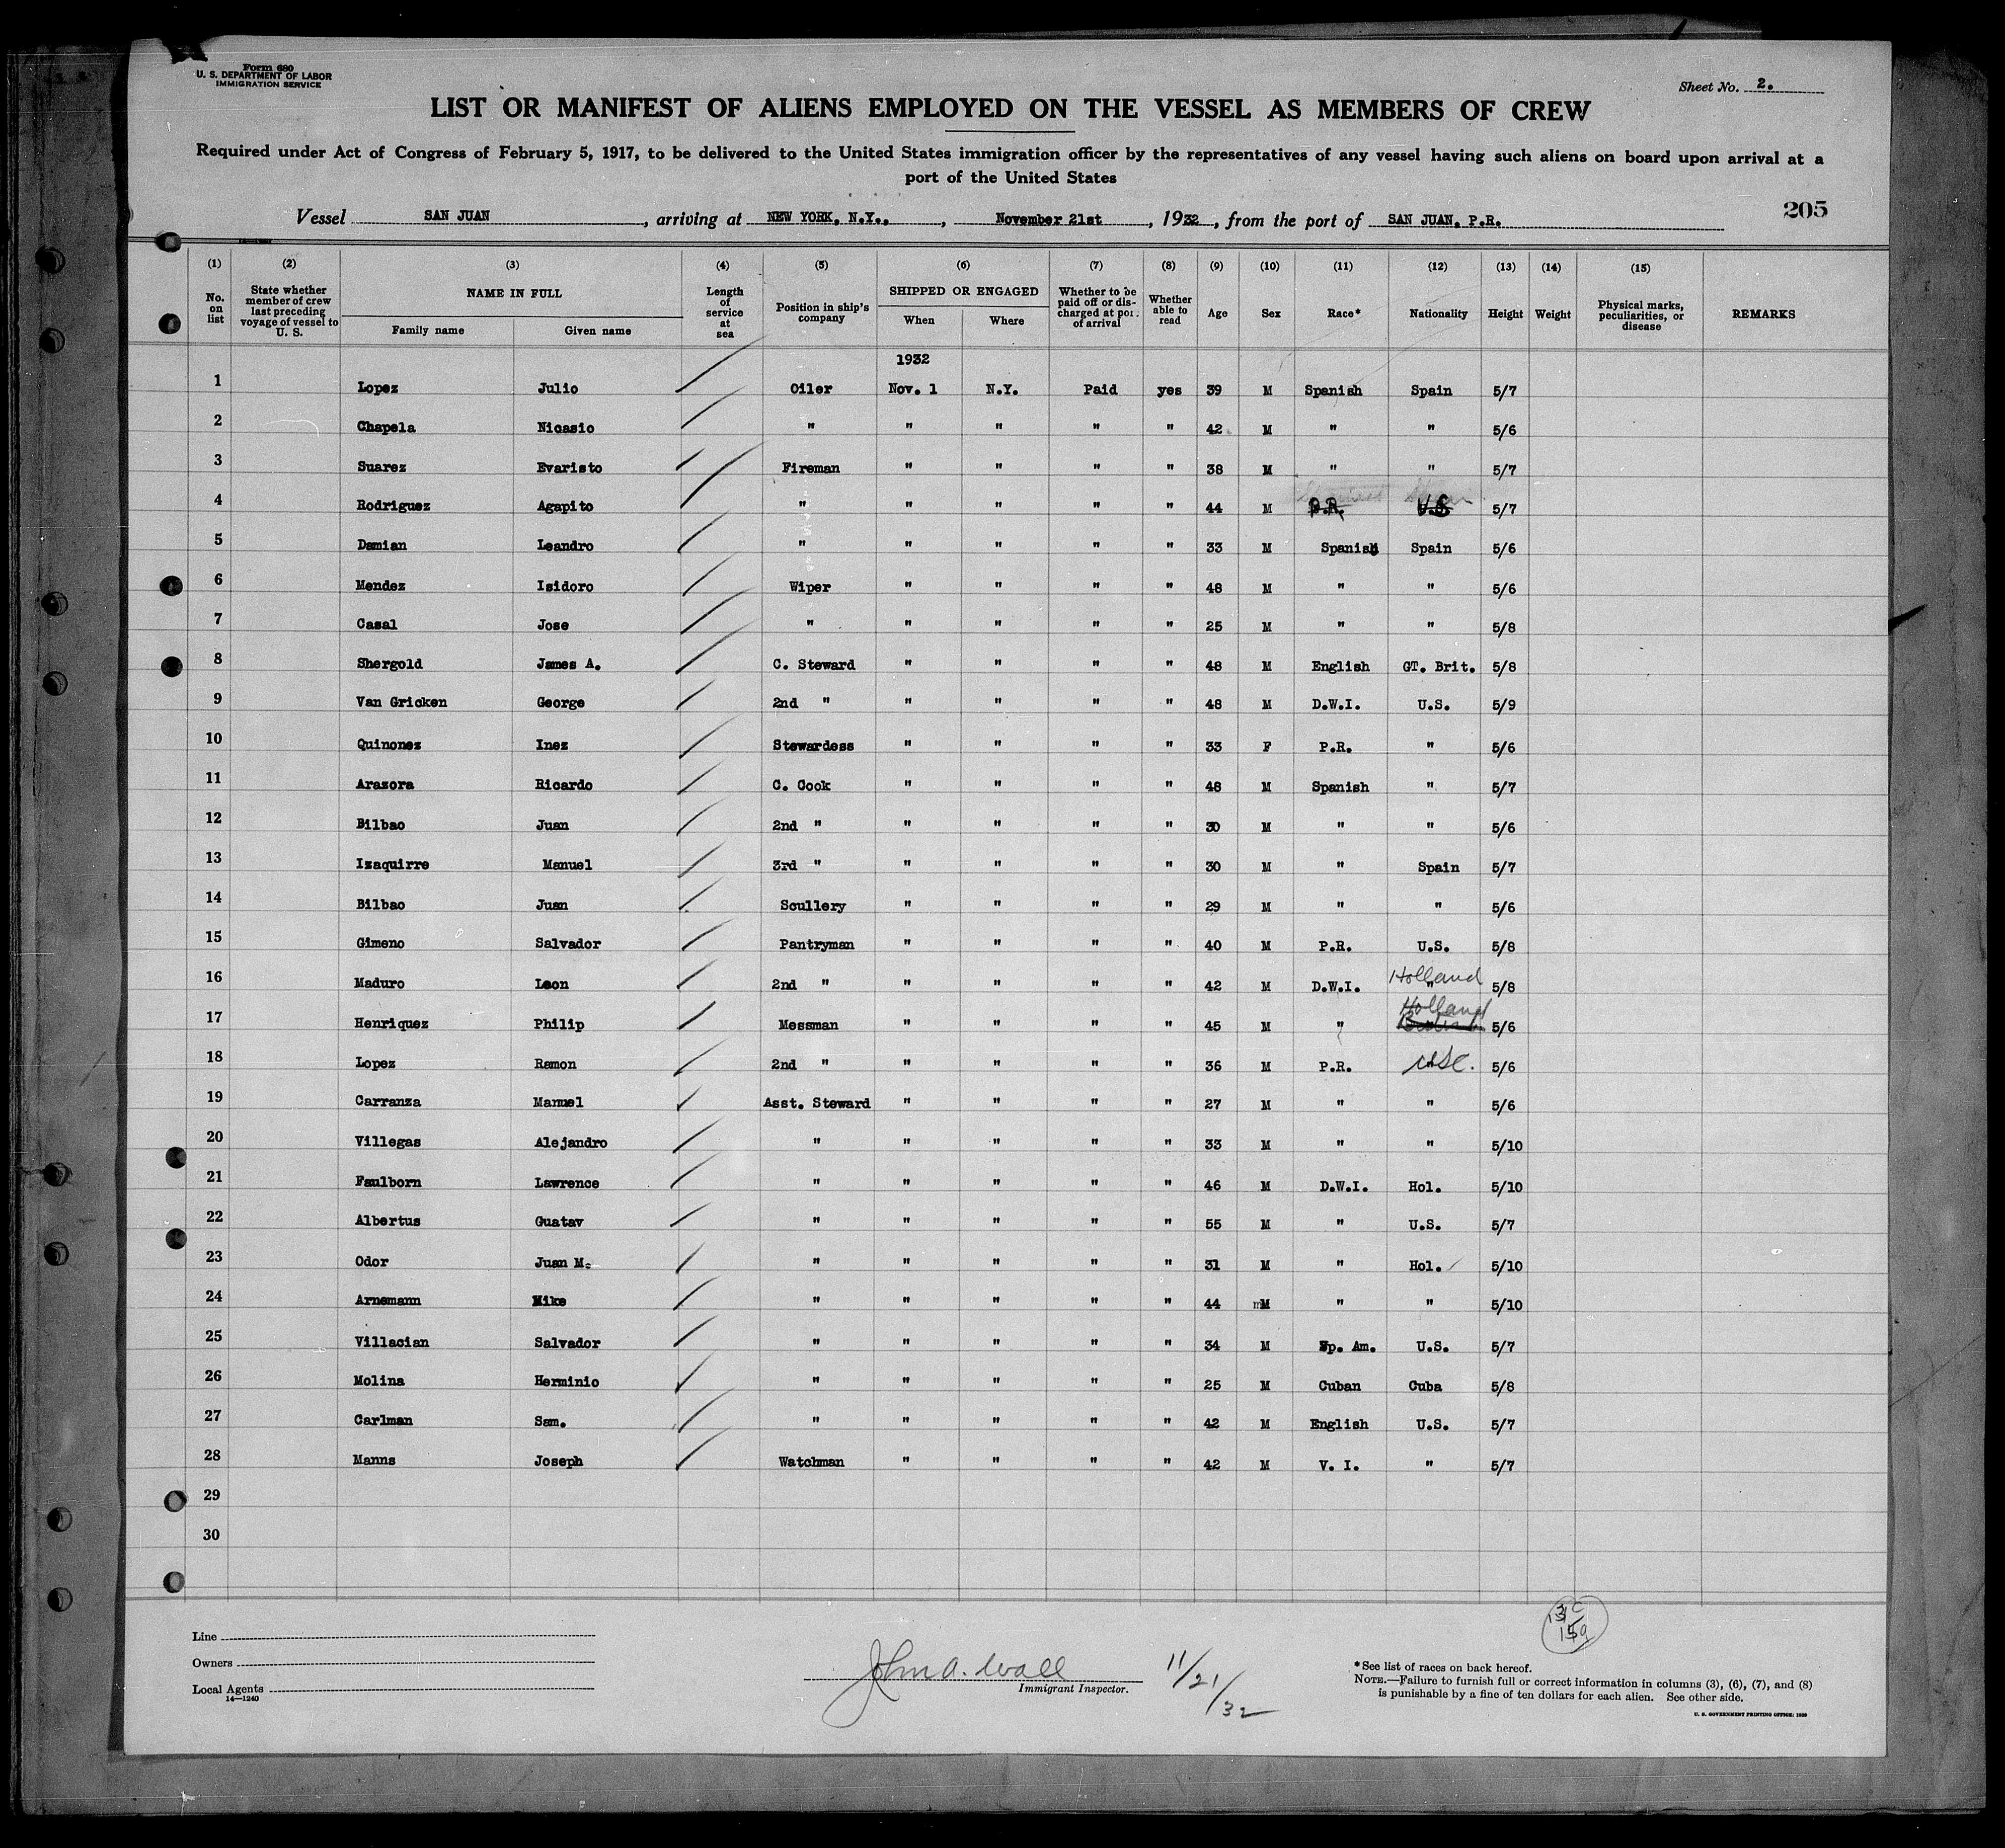 Form 680
U. S. DEPARTMENT OF LABOR
IMMIGRATION SERVICE
Sheet No. 2.
LIST OR MANIFEST OF ALIENS EMPLOYED ON THE VESSEL AS MEMBERS OF CREW
Required under Act of Congress of February 5, 1917, to be delivered to the United States immigration officer by the representatives of any vessel having such aliens on board upon arrival at a
port of the United States
Vessel SAN JUAN, arriving at NEW YORK, N.Y., November 21st, 1932, from the port of SAN JUAN, P.R.
205
(1) (2) (3) (4) (5) (6) (7) (8) (9) (10) (11) (12) (13) (14) (15)
No. on list
State whether member of crew last preceding voyage of vessel to U. S.
NAME IN FULL
Family name Given name
Length of service at sea
Position in ship's company
SHIPPED OR ENGAGED
When Where
Whether to be paid off or discharged at port of arrival
Whether able to read
Age Sex Race* Nationality Height Weight
Physical marks, peculiarities, or disease
REMARKS
1932
1 Lopez Julio Oiler Nov. 1 N.Y. Paid yes 39 M Spanish Spain 5/7
2 Chapela Nicasio " " " " " 42 M " " 5/6
3 Suarez Evaristo Fireman " " " " 38 M " " 5/7
4 Rodriguez Agapito " " " " " 44 M Spanish P.R. Spain U.S. 5/7
5 Damian Leandro " " " " " 33 M Spanish Spain 5/6
6 Mendez Isidoro Wiper " " " " 48 M " " 5/6
7 Casal Jose " " " " " 25 M " " 5/8
8 Shergold James A. C. Steward " " " " 48 M English GT. Brit. 5/8
9 Van Gricken George 2nd " " " " " 48 M D.W.I. U.S. 5/9
10 Quinonez Inez Stewardess " " " " 33 F P.R. " 5/6
11 Arazora Ricardo C. Cook " " " " 48 M Spanish " 5/7
12 Bilbao Juan 2nd " " " " " 30 M " " 5/6
13 Izaquirre Manuel 3rd " " " " " 30 M " Spain 5/7
14 Bilbao Juan Scullery " " " " 29 M " " 5/6
15 Gimeno Salvador Pantryman " " " " 40 M P.R. U.S. 5/8
16 Maduro Leon 2nd " " " " " 42 M D.W.I. " Holland 5/8
17 Henriquez Philip Messman " " " " 45 M " Holland 5/6
18 Lopez Ramon 2nd " " " " " 36 M P.R. 5/6
19 Carranza Manuel Asst. Steward " " " " 27 M " " 5/6
20 Villegas Alejandro " " " " " 33 M " " 5/10
21 Faulborn Lawrence " " " " " 46 M D.W.I. Hol. 5/10
22 Albertus Guatav " " " " " 55 M " U.S. 5/7
23 Odor Juan M. " " " " " 31 M " Hol. 5/10
24 Arnemann Mike " " " " " 44 M " " 5/10
25 Villacian Salvador " " " " " 34 M Sp. Am. U.S. 5/7
26 Molina Herminio " " " " " 25 M Cuban Cuba 5/8
27 Carlman Sam. " " " " " 42 M English U.S. 5/7
28 Manns Joseph Watchman " " " " 42 M V. I. " 5/7
29
30
Line
Owners
Local Agents
14—1240
John A. Wall
Immigrant Inspector.
11/21/32
*See list of races on back hereof.
NOTE.—Failure to furnish full or correct information in columns (3), (6), (7), and (8)
is punishable by a fine of ten dollars for each alien. See other side.
U. S. GOVERNMENT PRINTING OFFICE: